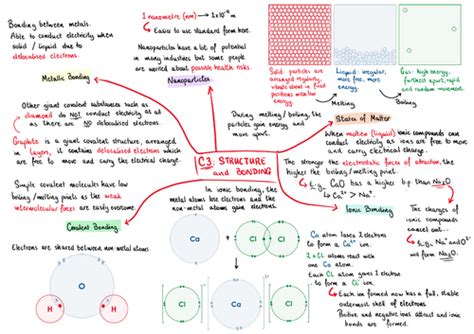 Bonding between metals.
Able to conduct electricity when
solid / liquid due to
delocalised electrons.
Metallic Bonding
1 nanometre (nm) → 1x10⁻⁹ m
↳ Easier to use standard form here.
Nanoparticles have a lot of potential
in many industries but some people
are worried about possible health risks.
Nanoparticles
Solid: particles
are arranged regularly,
vibrate about in fixed
positions with low
energy.
Liquid: irregular,
more free, more
energy.
Gas: high energy,
furthest apart, rapid
and random movement.
Melting
Boiling
During melting / boiling, the
particles gain energy and
move apart.
States of Matter
When molten (liquid) ionic compounds can
conduct electricity as ions are free to move
and carry electrical charge.
Other giant covalent substances such as
diamond do NOT conduct electricity at all
as there are NO delocalised electrons.
Graphite is a giant covalent structure, arranged
in layers, it contains delocalised electrons which
are free to move and carry the electrical charge.
C3: STRUCTURE
and BONDING
The stronger the electrostatic forces of attraction, the
higher the boiling/melting point.
↳ E.g. CaO has a higher b.p than Na₂O
↳ Ca²⁺ > Na⁺.
Simple covalent molecules have low
boiling/melting points as the weak
intermolecular forces are easily overcome.
Covalent Bonding
Electrons are shared between non-metal atoms.
In ionic bonding, the
metal atoms lose electrons and the
non-metal atoms gain electrons.
Ionic Bonding
The charges of
ionic compounds
cancel out...
↳ E.g. Na⁺ and O²⁻
form Na₂O, not
NaO.
O
H
H
Ca
Cl
Cl
Cl
Ca
Cl
Ca atom loses 2 electrons
to form a Ca²⁺ ion.
2 x Cl atoms react with
one Ca atom.
Each Cl atom gains 1 electron
to form a Cl⁻ ion.
↳ Each ion formed now has a full, stable
outermost shell of electrons.
Positive and negative ions attract and ionic
bonds are formed.